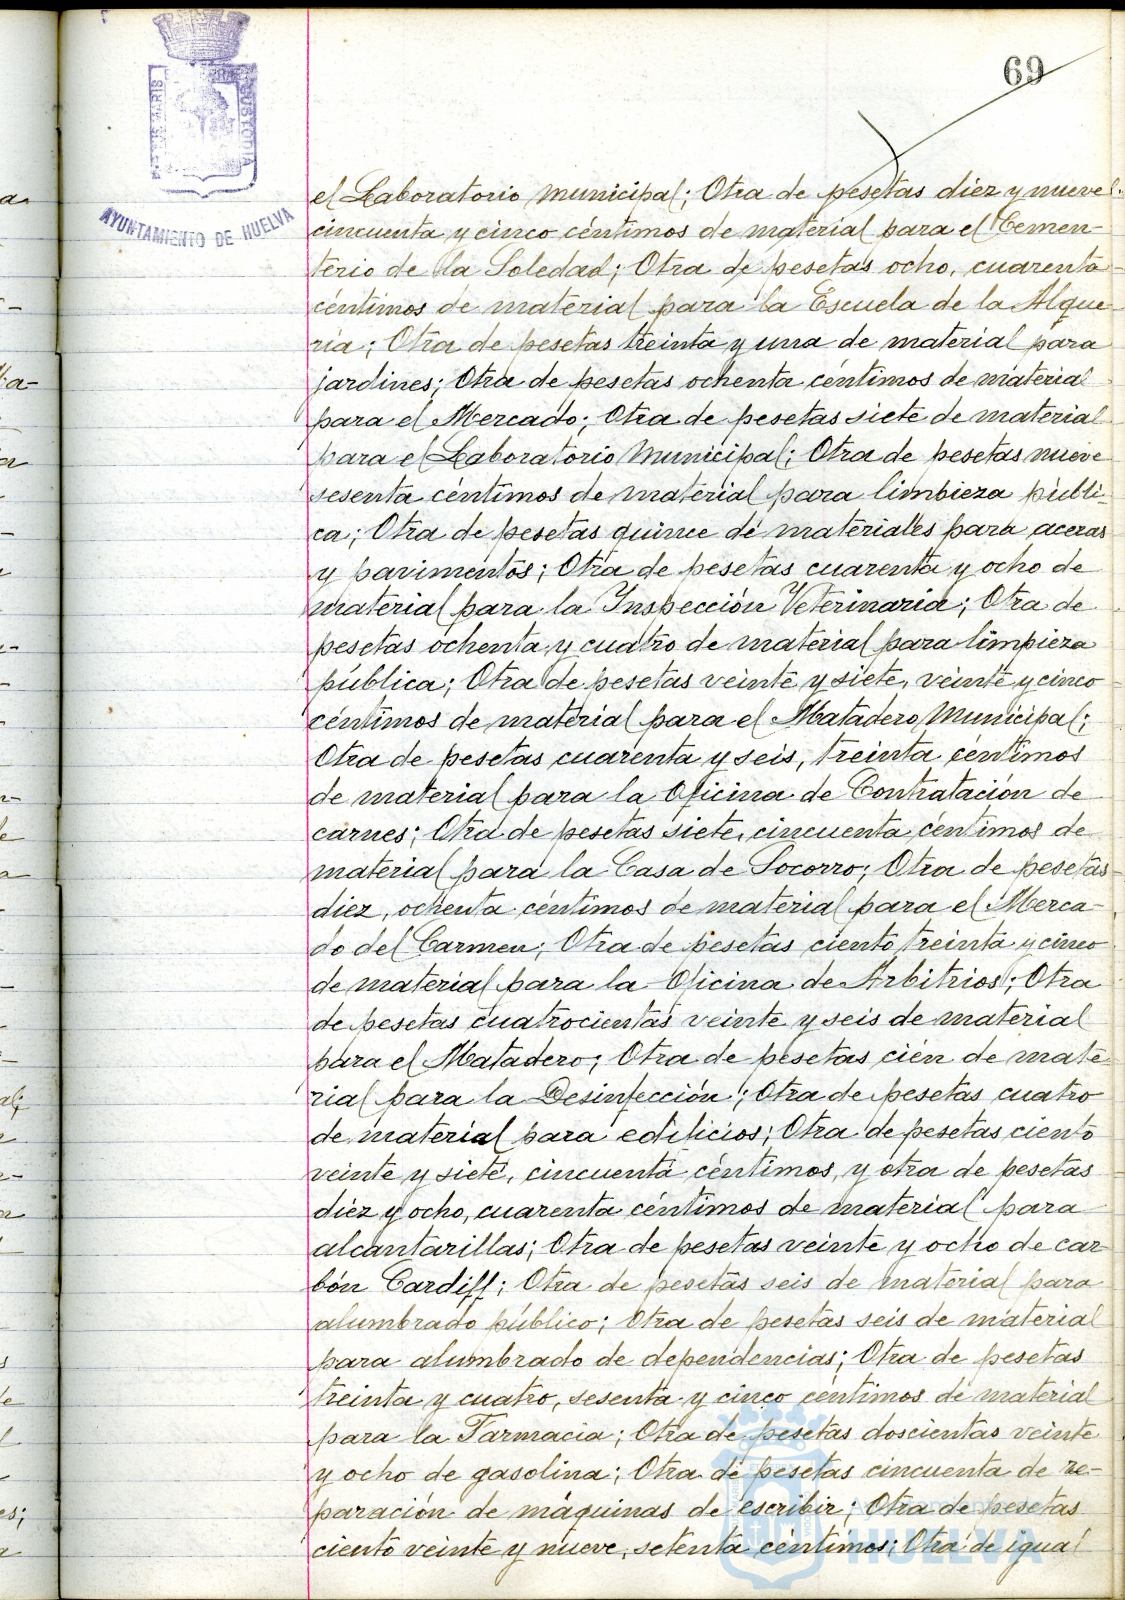 69
PORTUS MARIS
CUSTODIA
AYUNTAMIENTO DE HUELVA
el Laboratorio Municipal; Otra de pesetas diez y nueve
cincuenta y cinco céntimos de material para el Cemen-
terio de la Soledad; Otra de pesetas ocho, cuarenta
céntimos de material para la Escuela de la Alque-
ria; Otra de pesetas treinta y una de material para
jardines; Otra de pesetas ochenta céntimos de material
para el Mercado; Otra de pesetas siete de material
para el Laboratorio Municipal; Otra de pesetas nueve
sesenta céntimos de material para limpieza públi-
ca; Otra de pesetas quince de materiales para aceras
y pavimentos; Otra de pesetas cuarenta y ocho de
material para la Inspección Veterinaria; Otra de
pesetas ochenta y cuatro de material para limpieza
pública; Otra de pesetas veinte y siete, veinte y cinco
céntimos de material para el Matadero Municipal;
Otra de pesetas cuarenta y seis, treinta céntimos
de material para la Oficina de Contratación de
carnes; Otra de pesetas siete, cincuenta céntimos de
material para la Casa de Socorro; Otra de pesetas
diez, ochenta céntimos de material para el Merca-
do del Carmen; Otra de pesetas ciento treinta y cinco
de material para la Oficina de Arbitrios; Otra
de pesetas cuatrocientas veinte y seis de material
para el Matadero; Otra de pesetas cién de mate-
rial para la Desinfección; Otra de pesetas cuatro
de material para edificios; Otra de pesetas ciento
veinte y siete, cincuenta céntimos, y otra de pesetas
diez y ocho, cuarenta céntimos de material para
alcantarillas; Otra de pesetas veinte y ocho de car-
bón Cardiff; Otra de pesetas seis de material para
alumbrado público; Otra de pesetas seis de material
para alumbrado de dependencias; Otra de pesetas
treinta y cuatro, sesenta y cinco céntimos de material
para la Farmacia; Otra de pesetas doscientas veinte
y ocho de gasolina; Otra de pesetas cincuenta de re-
paración de máquinas de escribir; Otra de pesetas
ciento veinte y nueve, setenta céntimos; Otra de igual
Ayuntamiento
HUELVA